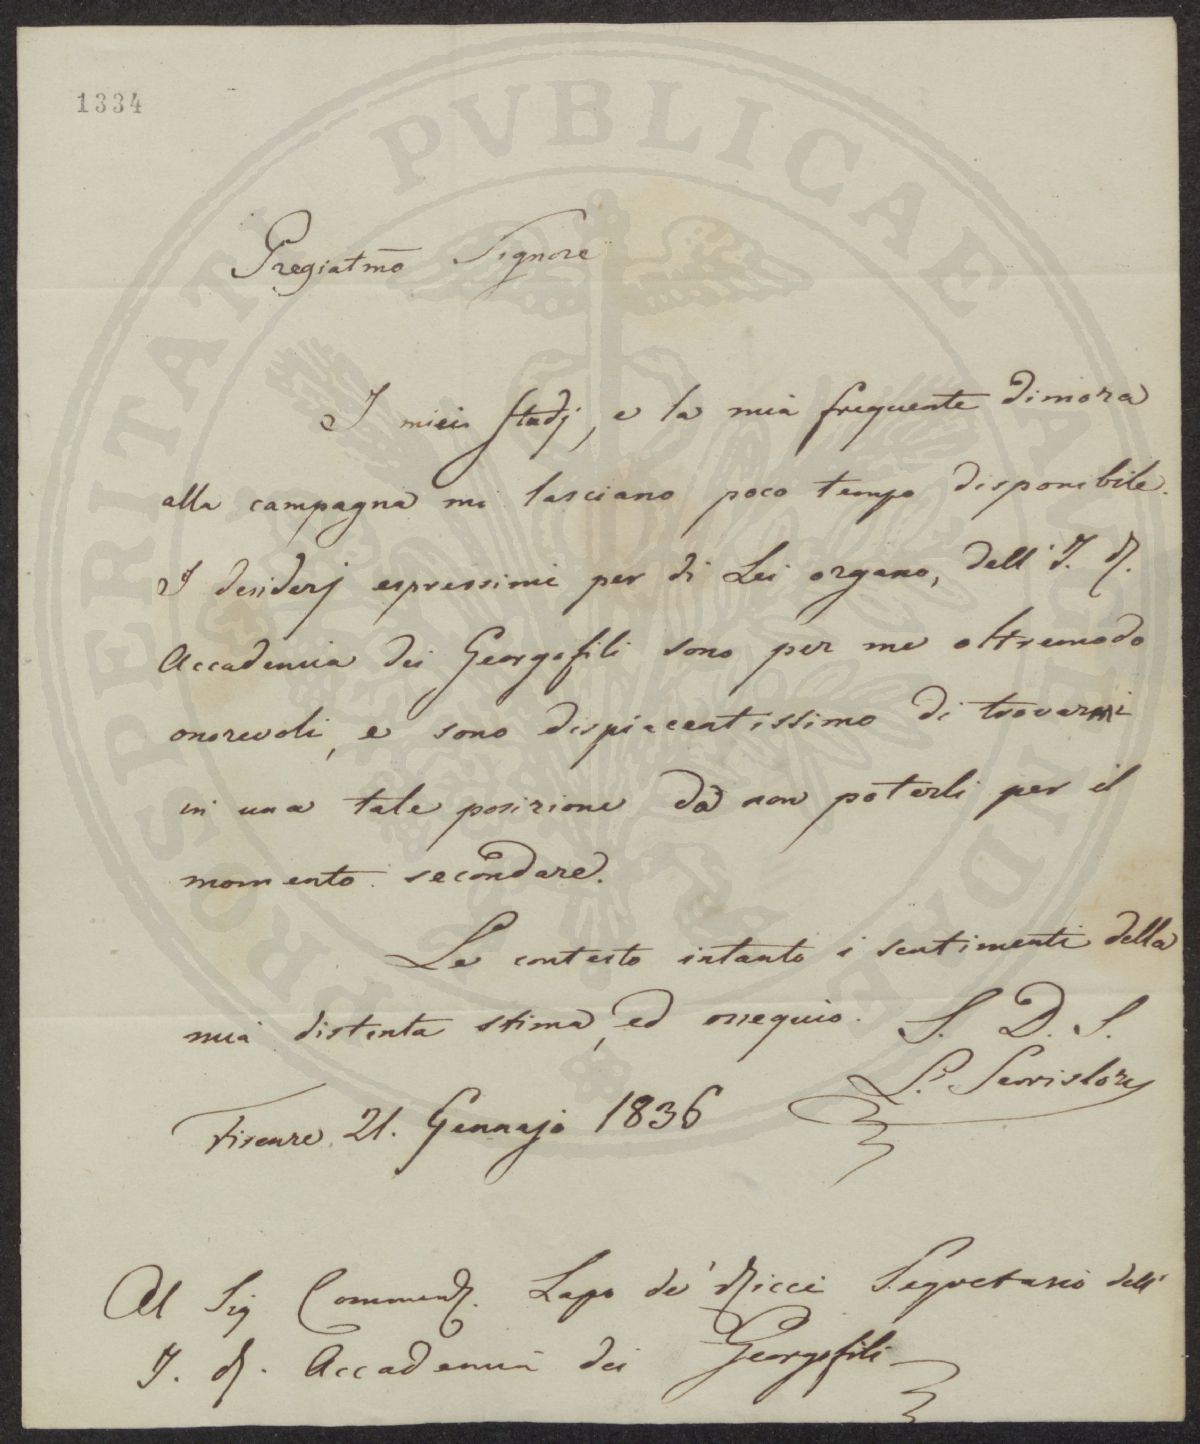 1334
PROSPERITATI PVBLICAE AVGENDAE
Pregiatmo Signore
I miei Studj, e la mia frequente dimora
alla campagna mi lasciano poco tempo disponibile.
I desiderj espressimi per di Lei organo, dell'I. R.
Accademia dei Georgofili sono per me oltremodo
onorevoli, e sono dispiacentissimo di trovarmi
in una tale posizione da non poterli per il
momento secondare.
Le contesto intanto i sentimenti della
mia distinta stima, ed ossequio. S. D. S.
L. Serristori
Firenze 21. Gennajo 1836
Al Sig Commend. Lapo de' Ricci Segretario dell'
I. R. Accademia dei Georgofili